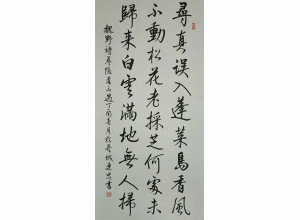 尋真误入蓬莱島香風
不動松花老採芝何處未
歸来白雲满地無人掃
魏野詩尋隐者不遇丁酉春月於